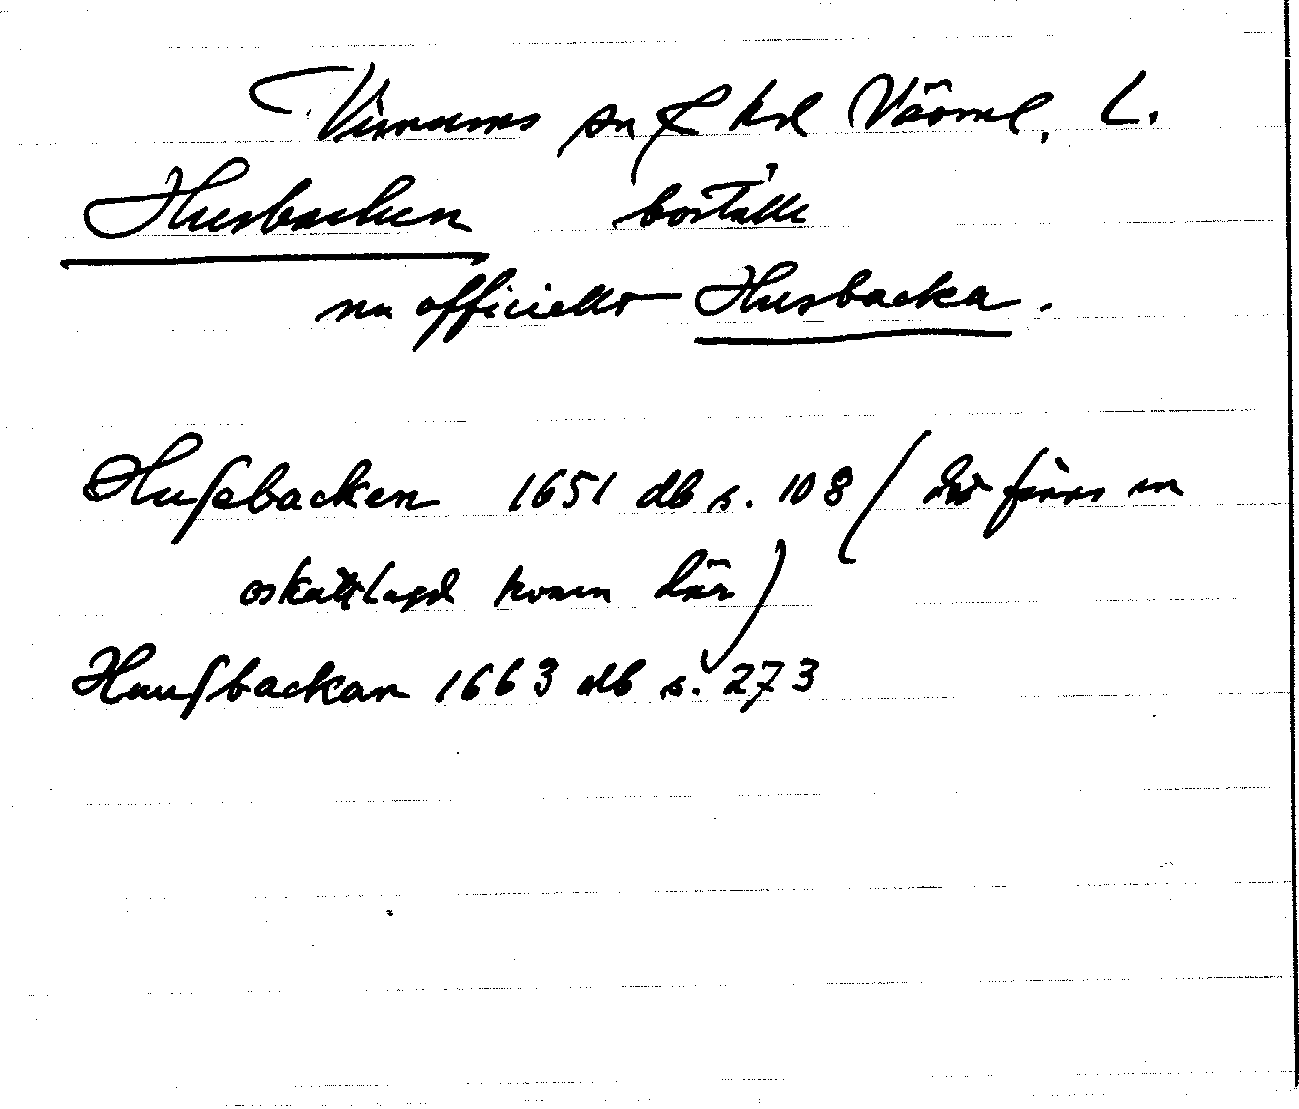 Visnums sn & hd Värml. L.
Husbacken boställe
nu officiellt Husbacka.
Husebacken 1651 db s. 108 (det finns en
oskattlagd kvarn där)
Huusbackan 1663 db s. 273